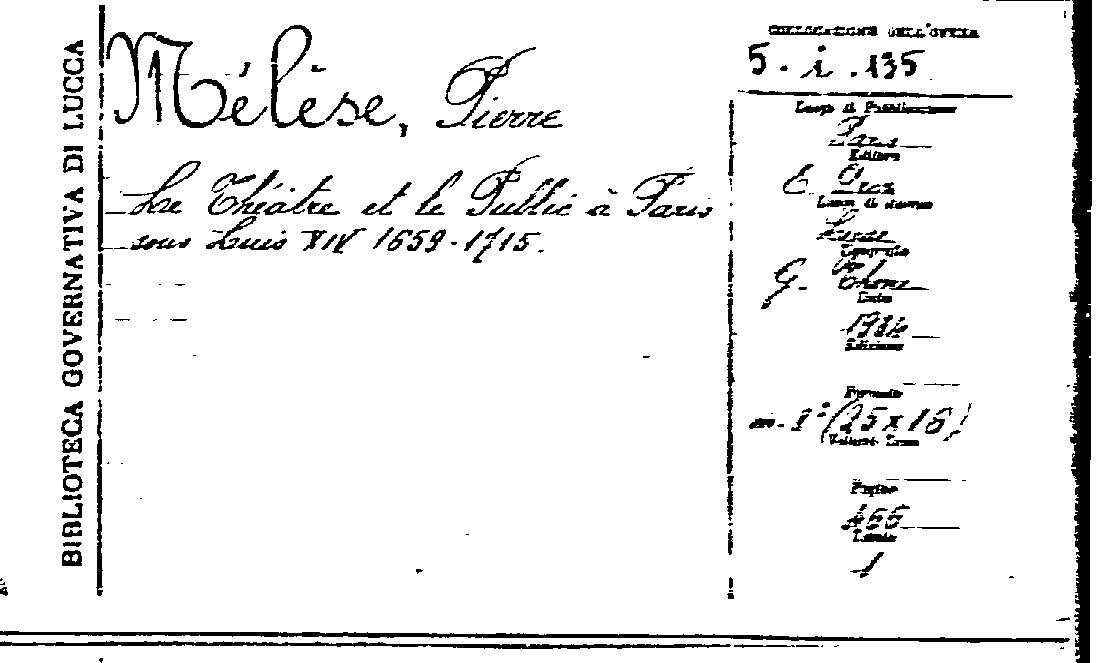 BIBLIOTECA GOVERNATIVA DI LUCCA
Mélèse, Pierre
Le Théâtre et le Public à Paris
sous Luis XIV 1659-1715.
COLLOCAZIONE DELL'OPERA
5. i. 135
Luogo di Pubblicazione
Paris
Editore
E. Droz
Luogo di stampa
Tipografia
G. Thone
Data
1934
Edizione
Formato
in-8° (25x16)
Pagine
466
1